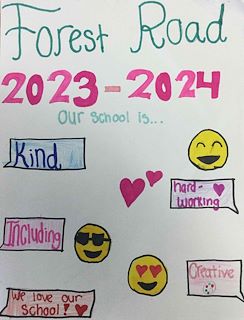 Forest Road
2023-2024
Our school is...
Kind
hard-
working
Including
Creative
We love our
school!